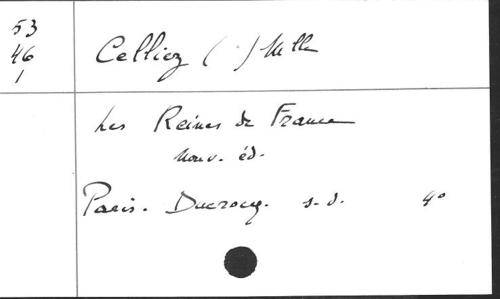 53
46
1
Celliez (.) Mlle
Les Reines de France
nouv. éd.
Paris. Ducrocq. s.d. 4°